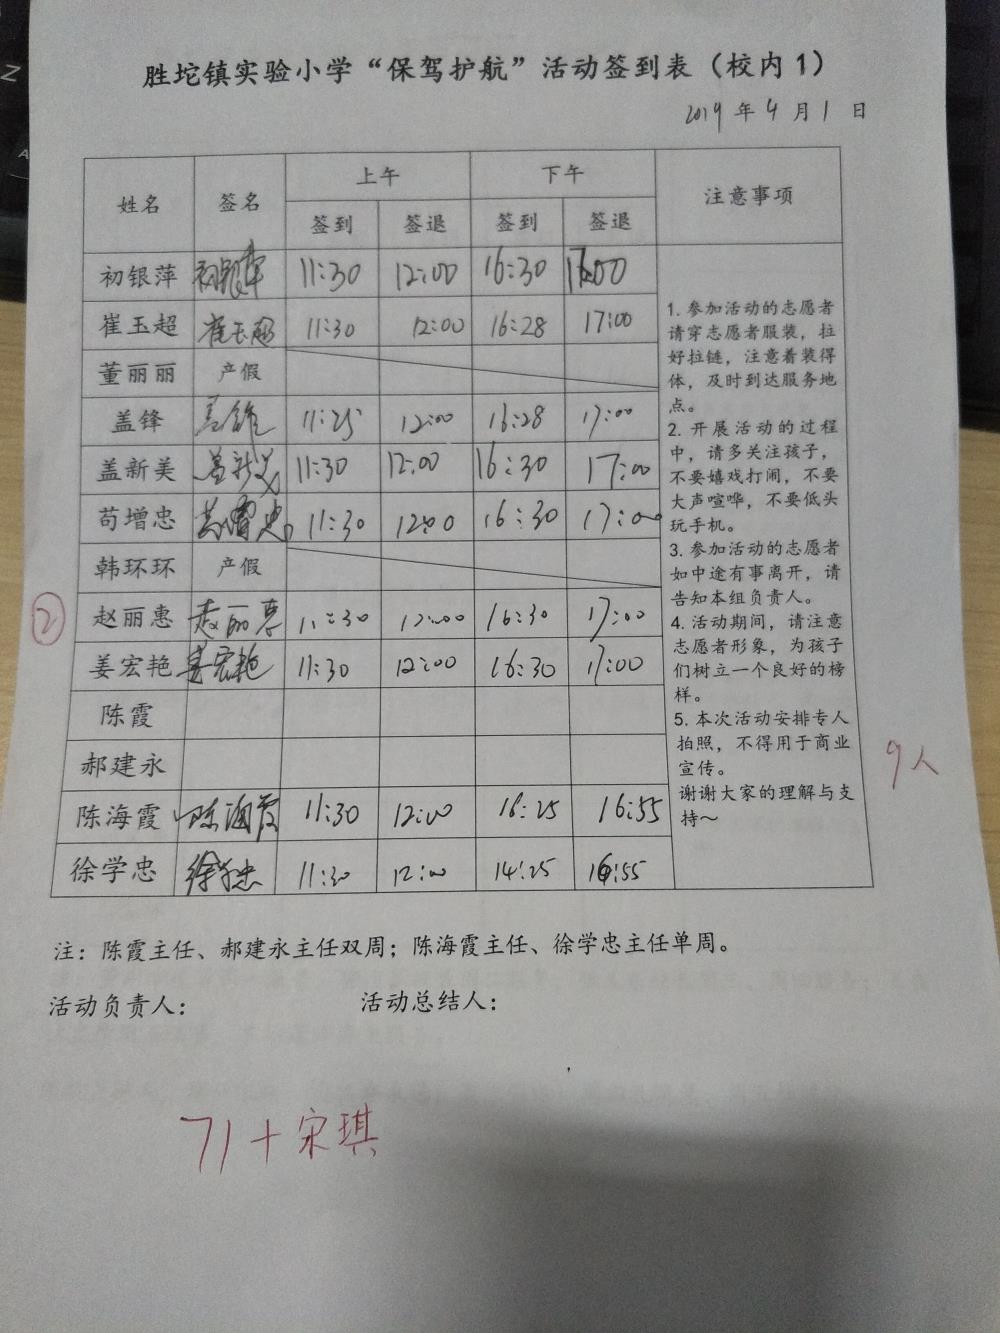 胜坨镇实验小学“保驾护航”活动签到表（校内1）
2019年4月1日
姓名 签名 上午 下午 注意事项
签到 签退 签到 签退
初银萍 初银萍 11:30 12:00 16:30 17:00
崔玉超 崔玉超 11:30 12:00 16:28 17:00
董丽丽 产假
盖锋 盖锋 11:25 12:00 16:28 17:00
盖新美 盖新美 11:30 12:00 16:30 17:00
苟增忠 苟增忠 11:30 12:00 16:30 17:00
韩环环 产假
② 赵丽惠 赵丽惠 11:30 12:00 16:30 17:00
姜宏艳 姜宏艳 11:30 12:00 16:30 17:00
陈霞
郝建永
陈海霞 陈海霞 11:30 12:00 16:25 16:55
徐学忠 徐学忠 11:30 12:00 14:25 16:55
1. 参加活动的志愿者
请穿志愿者服装，拉
好拉链，注意着装得
体，及时到达服务地
点。
2. 开展活动的过程
中，请多关注孩子，
不要嬉戏打闹，不要
大声喧哗，不要低头
玩手机。
3. 参加活动的志愿者
如中途有事离开，请
告知本组负责人。
4. 活动期间，请注意
志愿者形象，为孩子
们树立一个良好的榜
样。
5. 本次活动安排专人
拍照，不得用于商业
宣传。
谢谢大家的理解与支
持～
9人
注：陈霞主任、郝建永主任双周；陈海霞主任、徐学忠主任单周。
活动负责人： 活动总结人：
71+宋琪